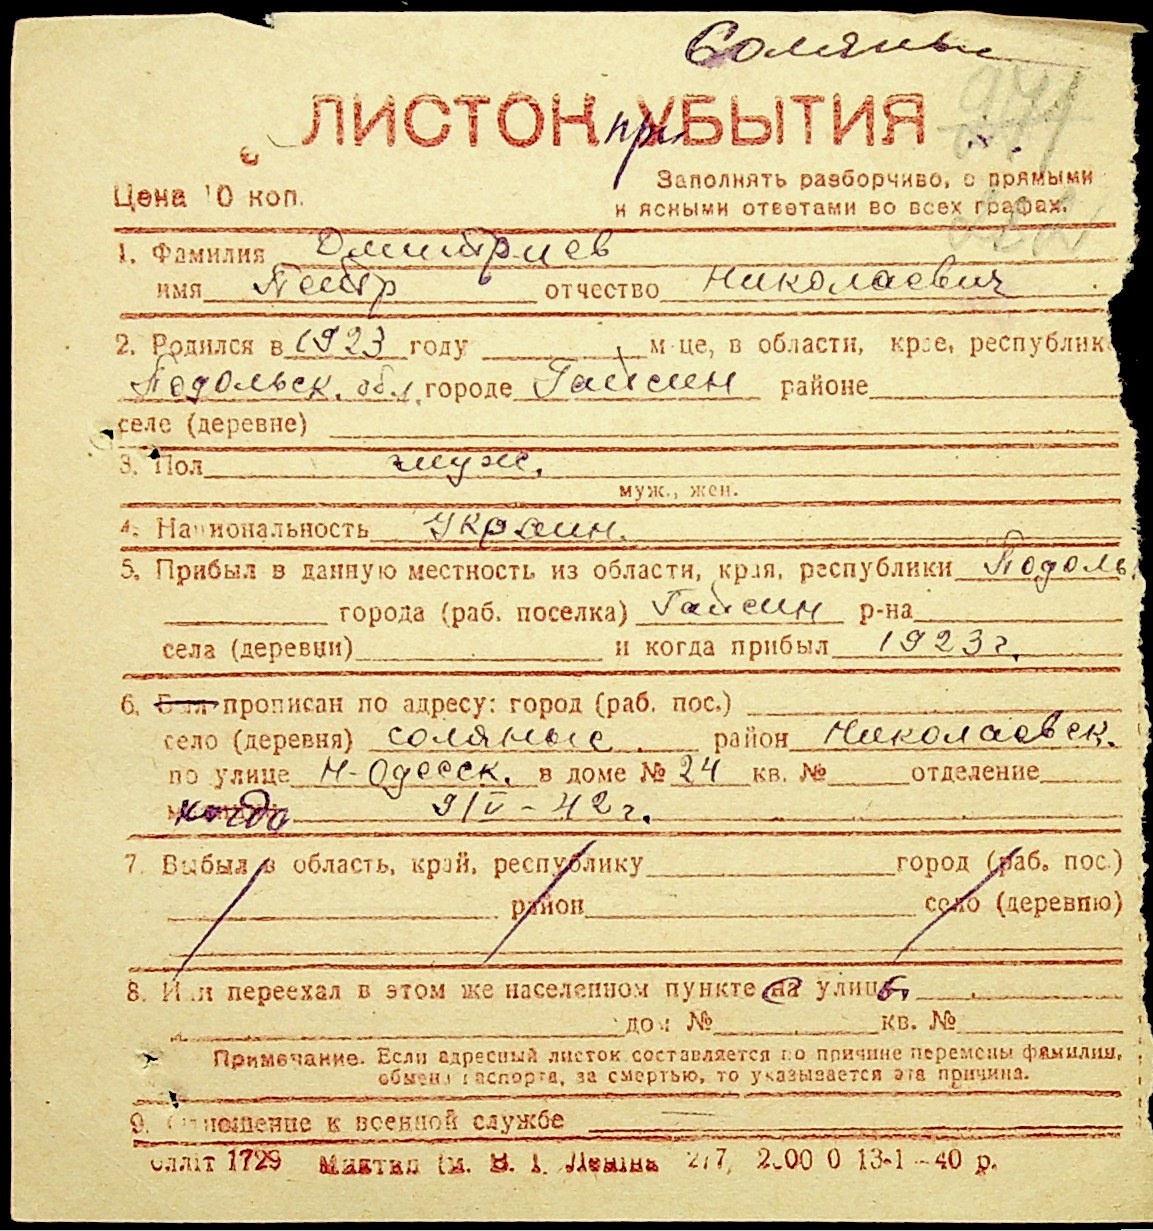 Соляные
ЛИСТОК при УБЫТИЯ
Цена 10 коп.
Заполнять разборчиво, с прямыми
и ясными ответами во всех графах.
1. Фамилия Дмитриев
имя Петр отчество Николаевич
2. Родился в 1923 году м-це, в области, крае, республик
Подольск. обл. городе Гайсин районе
селе (деревне)
3. Пол муж.
муж., жен.
4. Национальность украин.
5. Прибыл в данную местность из области, края, республики Подоль.
города (раб. поселка) Гайсин р-на
села (деревни) и когда прибыл 1923 г.
6. Был прописан по адресу: город (раб. пос.)
село (деревня) соляные район Николаевск.
по улице Н-Одесск. в доме № 24 кв. № отделение
когда 9/V-42 г.
7. Выбыл в область, край, республику город (раб. пос.)
район село (деревню)
8. Или переехал в этом же населенном пункте на улицу
дом № кв. №
Примечание. Если адресный листок составляется по причине перемены фамилии,
обмена паспорта, за смертью, то указывается эта причина.
9. Отношение к военной службе
Олліт 1729 В. І. Леніна 13-1-40 р.